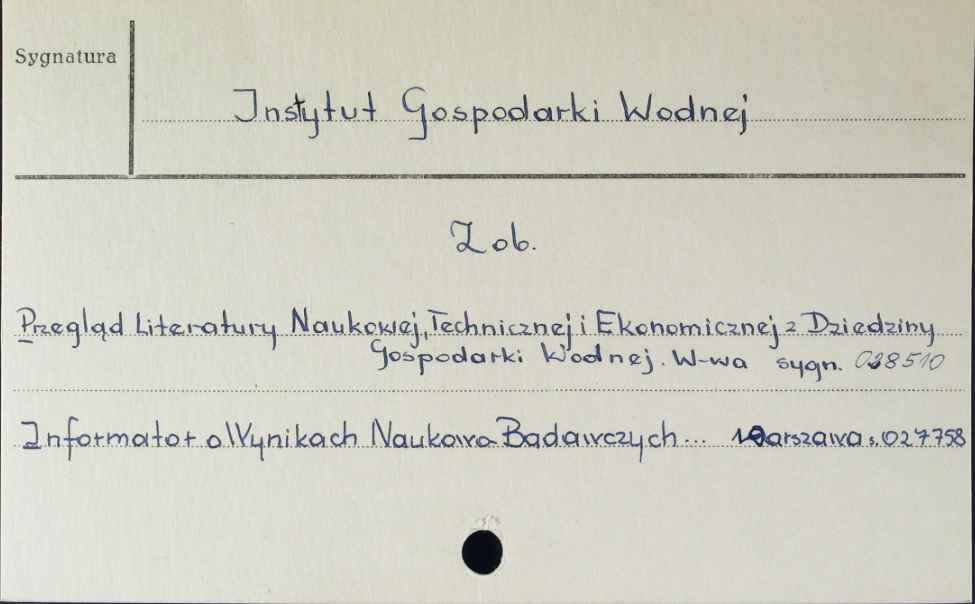 Sygnatura
Instytut Gospodarki Wodnej
Zob.
Przegląd Literatury Naukowej, Technicznej i Ekonomicznej z Dziedziny
Gospodarki Wodnej. W-wa sygn. 038510
Informator o Wynikach Naukowo Badawczych... Warszawa s. 027758